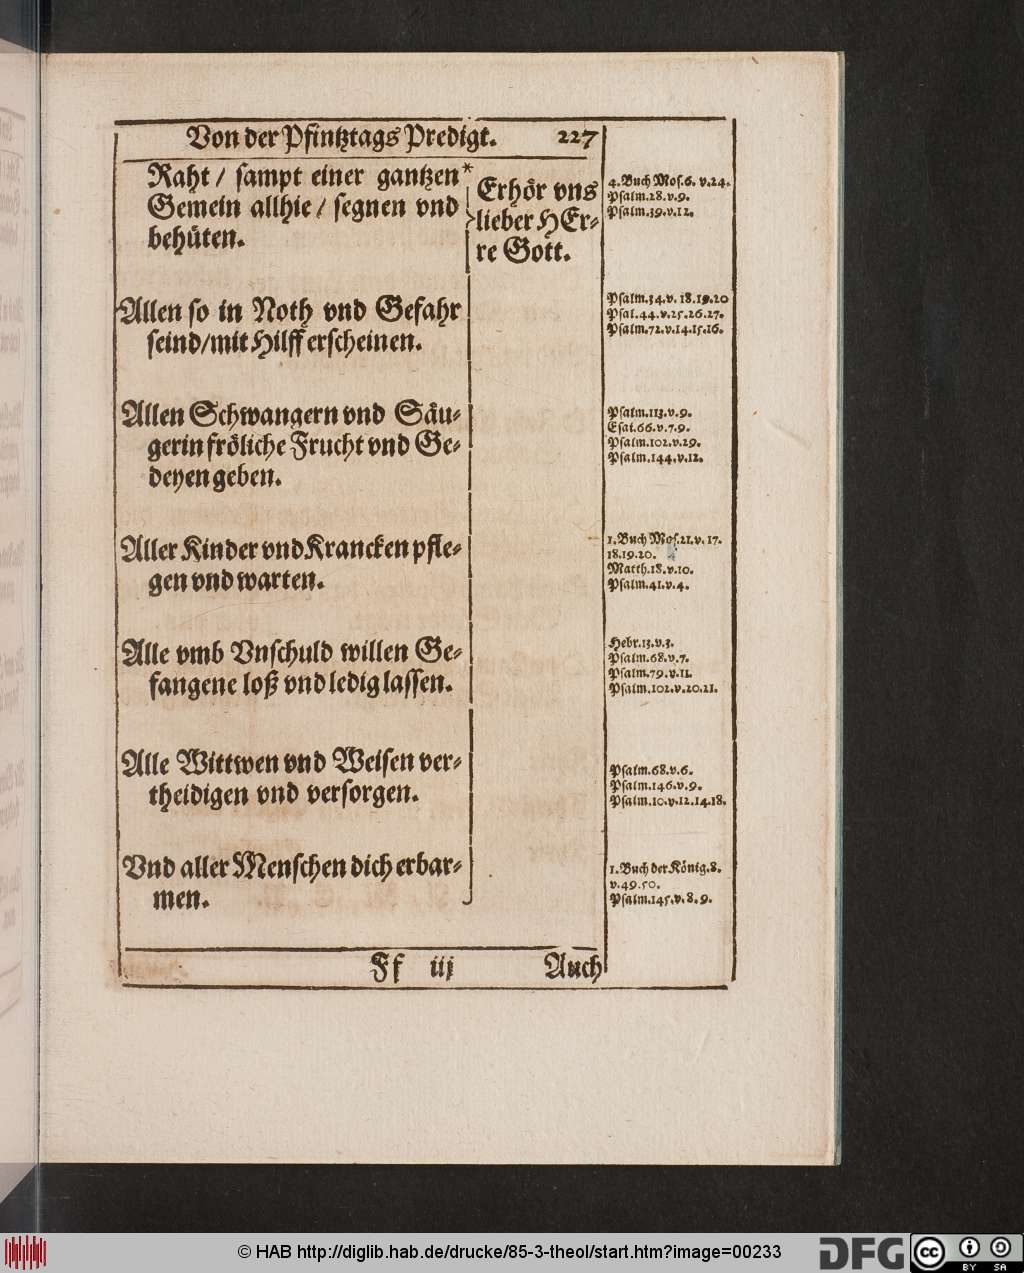 Von der Pfintztags Predigt. 227
Raht / sampt einer gantzen*
Gemein allhie / segnen vnd
behüten.
Erhör vns
lieber HEr-
re Gott.
4. Buch Mos.6. v.24.
Psalm.28.v.9.
Psalm.39.v.12.
Allen so in Noth vnd Gefahr
seind/mit Hilff erscheinen.
Psalm.34.v. 18.19.20
Psal.44.v.25.26.27.
Psalm.72.v.14.15.16.
Allen Schwangern vnd Säu-
gerin fröliche Frucht vnd Ge-
deyen geben.
Psalm.113.v.9.
Esai.66.v.7.9.
Psalm.102.v.29.
Psalm.144.v.12.
Aller Kinder vnd Krancken pfle-
gen vnd warten.
1. Buch Mos.21.v. 17.
18.19.20.
Matth.18.v.10.
Psalm.41.v.4.
Alle vmb Vnschuld willen Ge-
fangene loß vnd ledig lassen.
Hebr.13.v.3.
Psalm.68.v.7.
Psalm.79.v.11.
Psalm.102.v.20.21.
Alle Wittwen vnd Weisen ver-
theidigen vnd versorgen.
Psalm.68.v.6.
Psalm.146.v.9.
Psalm.10.v.12.14.18.
Vnd aller Menschen dich erbar-
men.
1. Buch der König.8.
v.49.50.
Psalm.145.v.8.9.
Ff iij Auch
© HAB http://diglib.hab.de/drucke/85-3-theol/start.htm?image=00233
DFG
cc BY SA